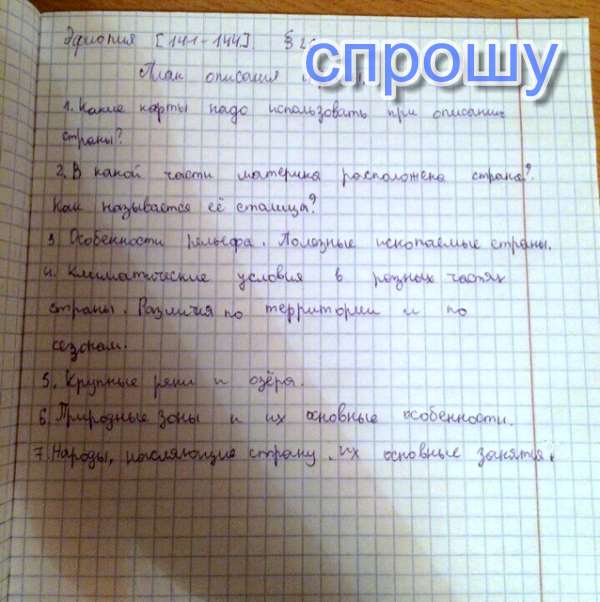 Эфиопия [141-144]. § 2
спрошу
План описания
1. Какие карты надо использовать при описании
страны?
2. В какой части материка расположена страна?
Как называется её сталица?
3. Особенности рельефа. Полезные ископаемые страны.
4. Климатические условия в разных частях
страны. Различия по территории и по
сезонам.
5. Крупные реки и озёра.
6. Природные зоны и их основные особенности.
7. Народы, населяющие страну. Их основные занятия.